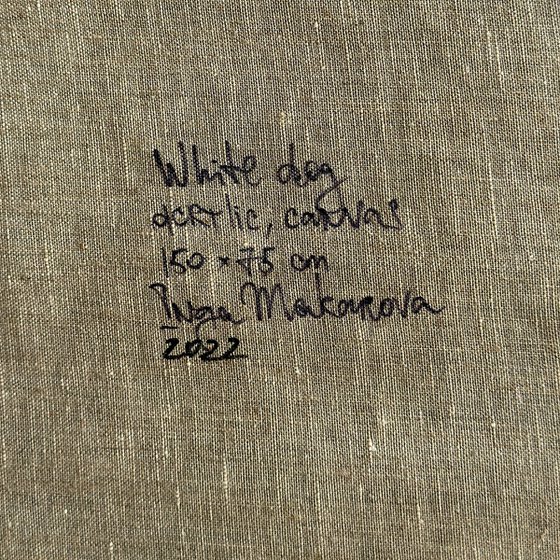 White dog
acrylic, canvas
150 × 75 cm
Inga Makarova
2022